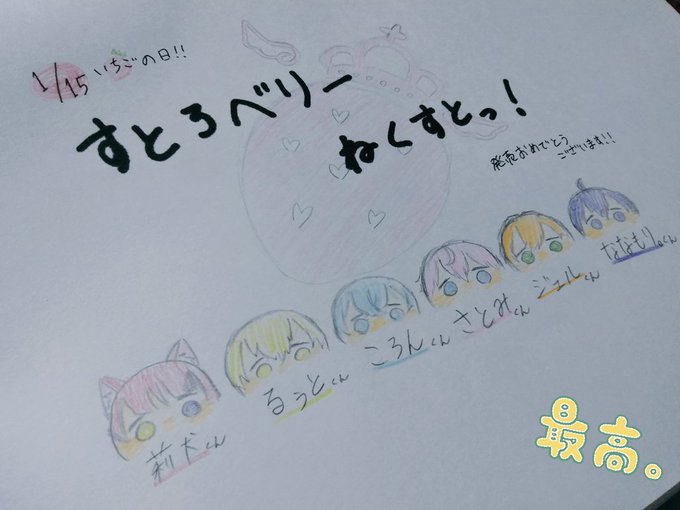 1/15 いちごの日!!
すとろべりー
ねくすとっ!
発売おめでとう
ございます!!
莉犬くん
るぅとくん
ころんくん
さとみくん
ジェルくん
ななもり。くん
最高。